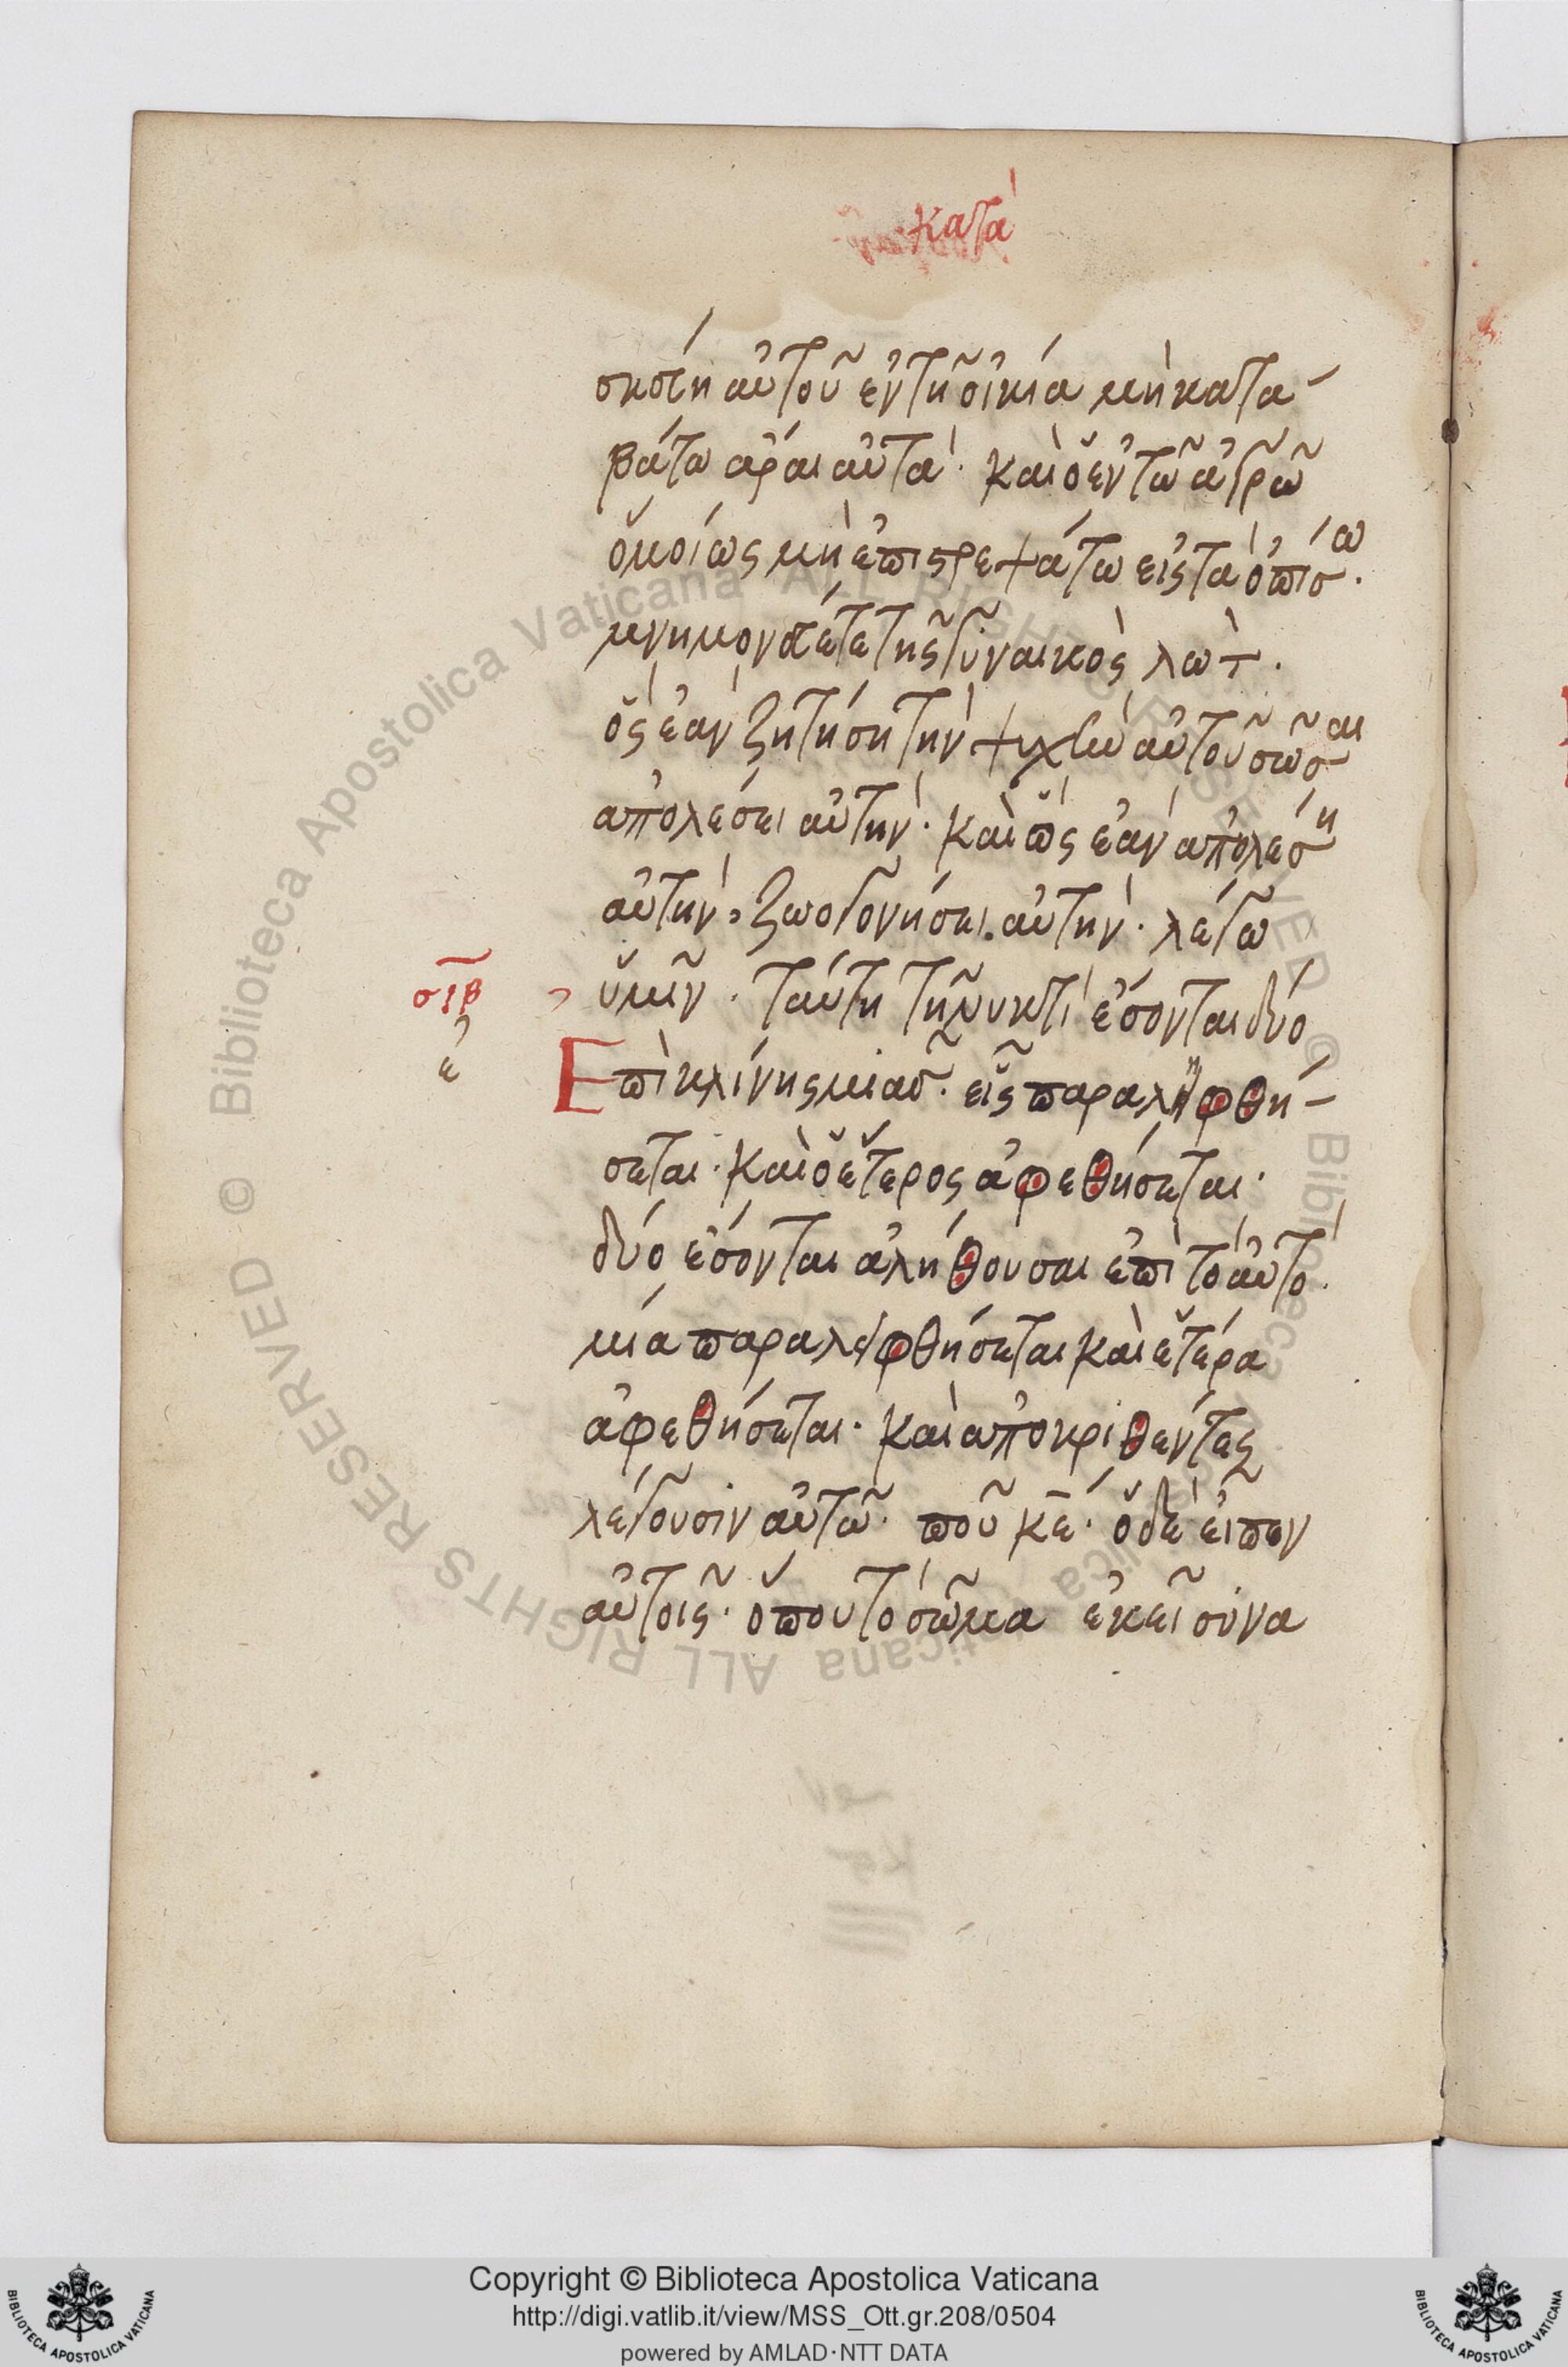 κατὰ
σκεύη αὐτοῦ ἐν τῆ οἰκία μὴ κατα-
βάτω ἆραι αὐτά· καὶ ὁ ἐν τῶ ἀγρῶ
ὁμοίως μὴ ἐπιστρεψάτω εἰς τὰ ὀπίσω·
μνημονεύετε τῆς γυναικὸς λώτ·
ὃς ἐὰν ζητήση τὴν ψυχὴν αὐτοῦ σῶσαι
ἀπολέσει αὐτήν· καὶ ὃς ἐὰν ἀπολέση
αὐτήν, ζωογονήσει αὐτήν· λέγω
σιβ ὑμῖν· ταύτη τῆ νυκτὶ ἔσονται δύο
ε
Ἐπὶ κλίνης μιᾶσ· εἷς παραληφθή-
σεται· καὶ ὁ ἕτερος ἀφεθήσεται·
δύο ἔσονται ἀλήθουσαι ἐπὶ τὸ αὐτό·
μία παραληφθήσεται καὶ ἑτέρα
ἀφεθήσεται· καὶ ἀποκριθέντες
λέγουσιν αὐτῶ· ποῦ κε· ὁ δὲ εἶπεν
αὐτοῖς· ὅπου τὸ σῶμα ἐκεῖ συνα
© Biblioteca Apostolica Vaticana ALL RIGHTS RESERVED © Biblioteca Apostolica Vaticana ALL RIGHTS RESERVED
Copyright © Biblioteca Apostolica Vaticana
http://digi.vatlib.it/view/MSS_Ott.gr.208/0504
powered by AMLAD·NTT DATA
BIBLIOTECA APOSTOLICA VATICANA
BIBLIOTECA APOSTOLICA VATICANA